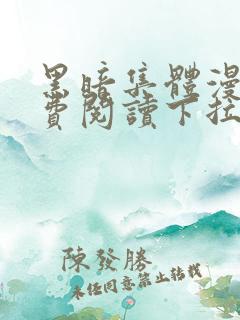 黑暗集體漫
費閱讀下拉
陳發勝
未经同意禁止转载